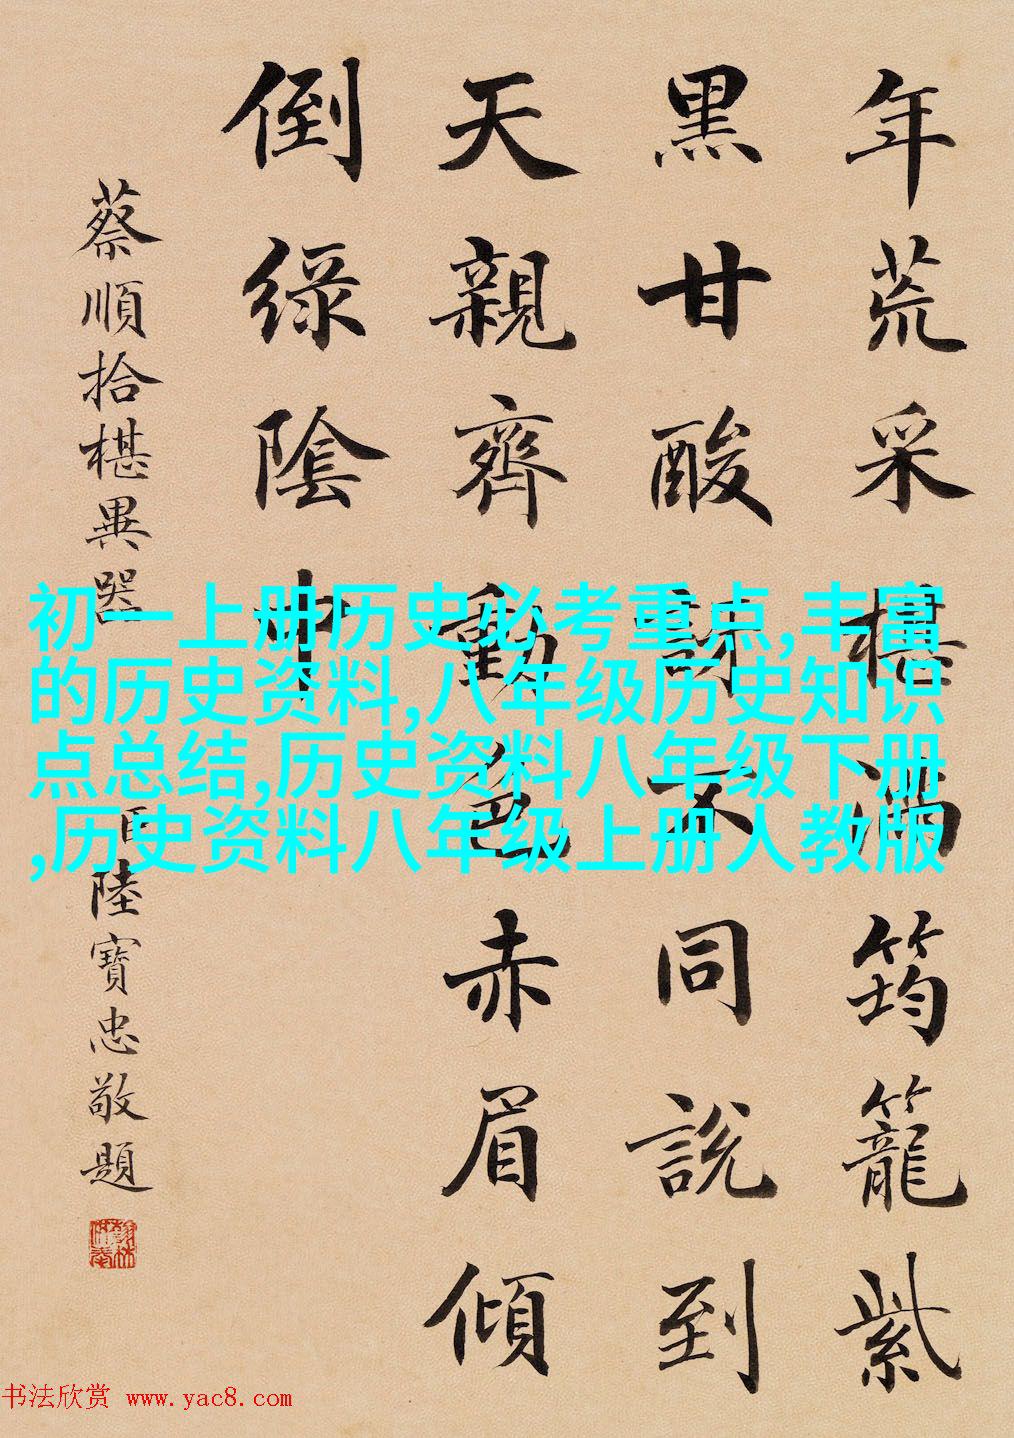 年荒采椹滿筠籠紫
黑甘酸訝不同說到
天親齊動色赤眉傾
倒綠陰中
蔡順拾椹異器
臣陸寶忠敬題
初一上册历史必考重点,丰富
的历史资料,八年级历史知识
点总结,历史资料八年级下册
,历史资料八年级上册人教版
书法欣赏 www.yac8.com